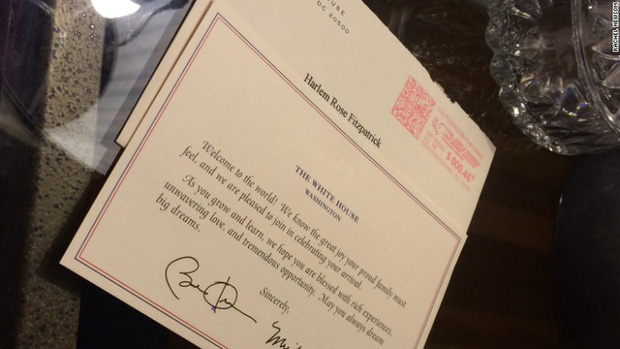 DC 20500
Harlem Rose Fitzpatrick
THE WHITE HOUSE
WASHINGTON
Welcome to the world! We know the great joy your proud family must
feel, and we are pleased to join in celebrating your arrival.
As you grow and learn, we hope you are blessed with rich experiences,
unwavering love, and tremendous opportunity. May you always dream
big dreams.
Sincerely,
RACHEL NEWSOM